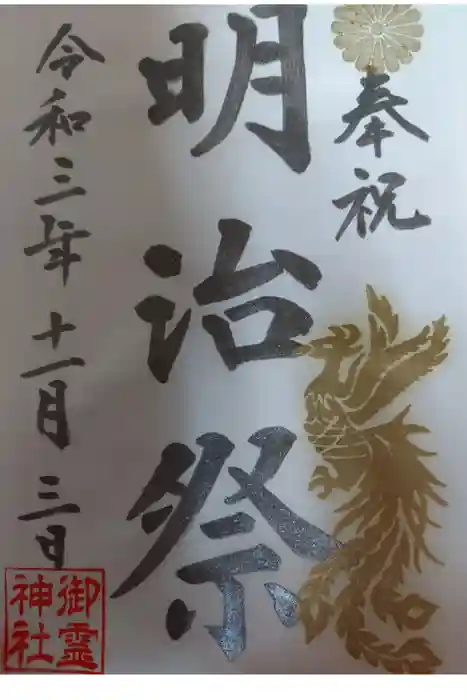 奉祝
明治祭
令和三年十一月三日
御霊
神社